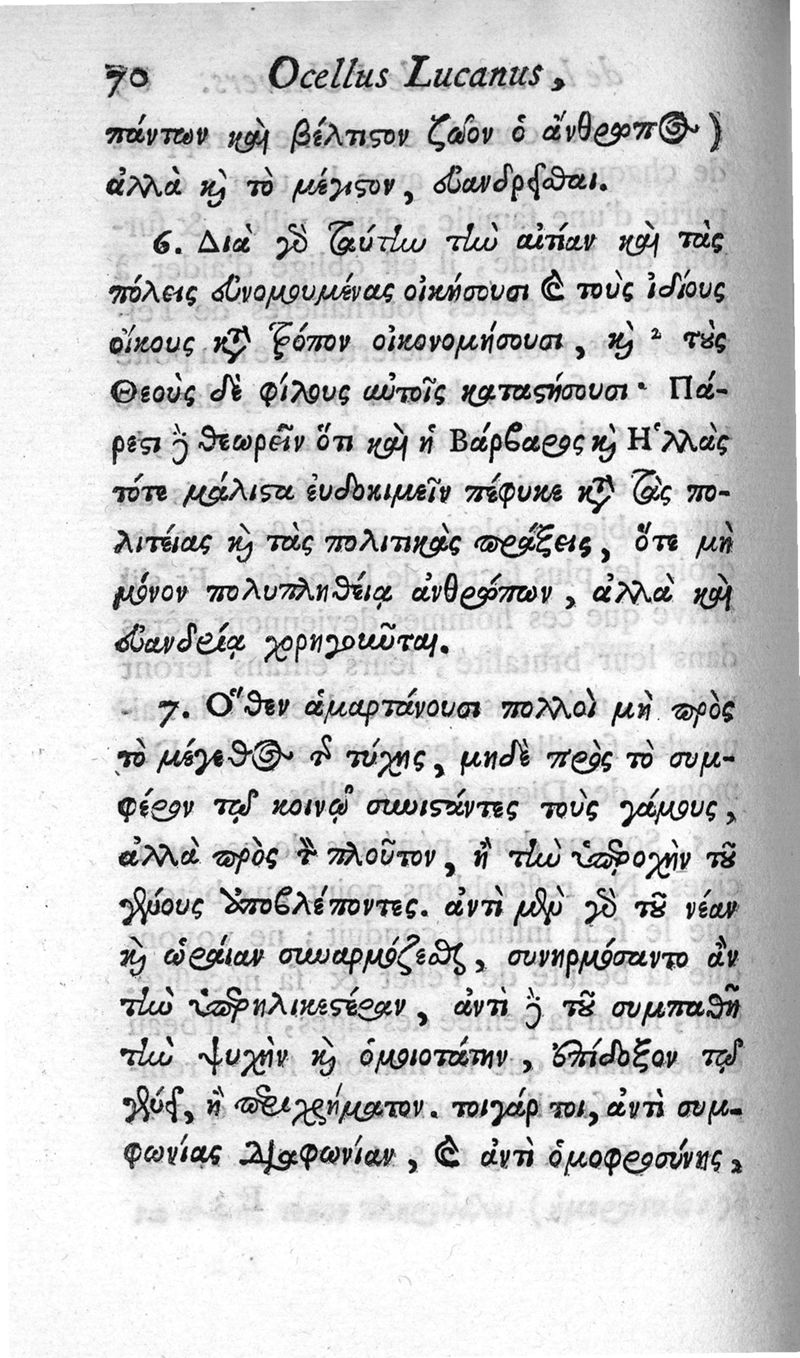 70 Ocellus Lucanus,
πάντων καὶ βέλτιστον ζῶον ὁ ἄνθρωπος)
ἀλλὰ καὶ τὸ μέγιστον, εὐανδρεῖσθαι.
6. Διὰ γὸ ταύτην τὴν αἰτίαν καὶ τὰς
πόλεις εὐνομουμένας οἰκήσουσι καὶ τοὺς ἰδίους
οἴκους κατὰ τρόπον οἰκονομήσουσι, καὶ 2 τοὺς
Θεοὺς δὲ φίλους αὐτοῖς καταστήσουσι · Πά-
ρεστι δὲ θεωρεῖν ὅτι καὶ ἡ Βάρβαρος καὶ Ἡλλὰς
τότε μάλιστα εὐδοκιμεῖν πέφυκε κατὰ τὰς πο-
λιτείας καὶ τὰς πολιτικὰς πράξεις, ὅτε μὴ
μόνον πολυπληθείᾳ ἀνθρώπων, ἀλλὰ καὶ
εὐανδρίᾳ χορηγοιῶται.
7. Ὅθεν ἁμαρτάνουσι πολλοὶ μὴ πρὸς
τὸ μέγεθος τῆς τύχης, μηδὲ πρὸς τὸ συμ-
φέρον τῷ κοινῷ συνιστάντες τοὺς γάμους,
ἀλλὰ πρὸς τὸν πλοῦτον, ἢ τὴν ὑπεροχὴν τοῦ
γένους ἀποβλέποντες. ἀντὶ μὲν γὸ τοῦ νέαν
καὶ ὡραίαν συναρμόζεσθαι, συνηρμόσαντο ἂν
τὴν ὑπερηλικεστέραν, ἀντὶ δὲ τοῦ συμπαθῆ
τὴν ψυχὴν καὶ ὁμοιοτάτην, ἐπίδοξον τῷ
γένει, ἢ περιχρήματον. τοιγάρ τοι, ἀντὶ συμ-
φωνίας διαφωνίαν, καὶ ἀντὶ ὁμοφροσύνης,